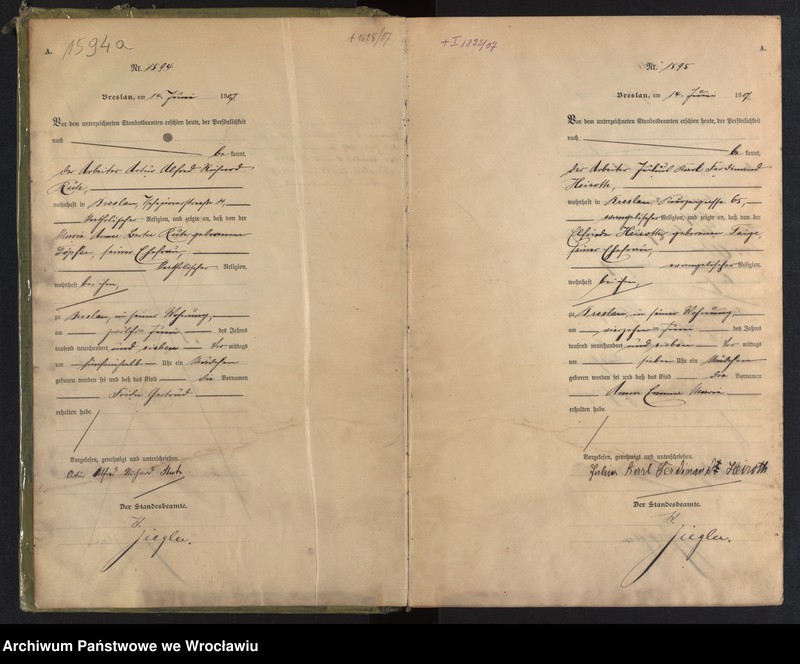 A.
1594a
Nr. 1594
Breslau, am 14. Juni 1907
Vor dem unterzeichneten Standesbeamten erschien heute, der Persönlichkeit
nach
be kannt,
der Arbeiter Artur Alfred Richard
wohnhaft in Breslau,
katholischer Religion, und zeigte an, daß von der
geborenen
seiner Ehefrau,
katholischer Religion,
wohnhaft bei ihm,
zu Breslau, in seiner Wohnung,
am zwölften Juni des Jahres
tausend neunhundert und sieben Vor mittags
um Uhr ein Mädchen
geboren worden sei und daß das Kind die Vornamen
Gertrud
erhalten habe.
Vorgelesen, genehmigt und unterschrieben.
Alfred Richard
Der Standesbeamte.
Ziegler.
A.
Nr. 1595
Breslau, am 14. Juni 1907.
Vor dem unterzeichneten Standesbeamten erschien heute, der Persönlichkeit
nach
be kannt,
der Arbeiter Julius Karl Ferdinand
Heiroth,
wohnhaft in Breslau 65,
evangelischer Religion, und zeigte an, daß von der
Elfriede Heiroth, geborenen
seiner Ehefrau,
evangelischer Religion,
wohnhaft bei ihm,
zu Breslau, in seiner Wohnung,
am vierzehnten Juni des Jahres
tausend neunhundert und sieben Vor mittags
um sieben Uhr ein Mädchen
geboren worden sei und daß das Kind die Vornamen
Anna Emma Maria
erhalten habe.
Vorgelesen, genehmigt und unterschrieben.
Julius Karl Ferdinand Heiroth
Der Standesbeamte.
Ziegler.
Archiwum Państwowe we Wrocławiu